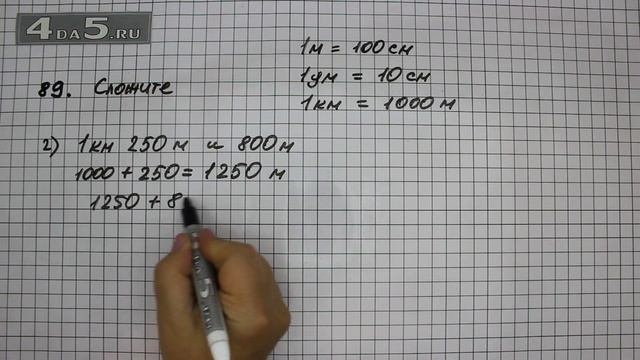 4DA5.RU
1м = 100 см
1дм = 10 см
1км = 1000 м
89. Сложите
2) 1 км 250 м и 800 м
1000 + 250 = 1250 м
1250 + 8